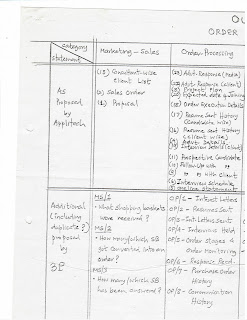 OR
ORDER
Category
Statement
Marketing - Sales
Order Processing
As
Proposed
by
Applitech
(15) Consultant-wise
Client List
b) Sales Order
(16) Proposal
Advt. Response (Media)
Advt. Response (client)
Project Plan
Expected date of Joining
Order Execution Details
(17) Resume Sent History
(Candidate wise)
Resume sent History
(client wise)
Advt. Details
Interview Details (client)
Prospective Candidate
Followup with
with Client
Interview Schedule
Additional
(including
duplicate?)
proposed
by
3P
MS/1
- What strategy/contacts
were received?
MS/2
- How many/which SB
got converted into an
order?
MS/3
- How many/which SB
has been answered?
OP/1 - Interest Letters
OP/2 - Resumes Sent
OP/3 - Intl Letters Sent
OP/4 - Interviews Held
OP/5 - Order Stages &
Order Monitoring
OP/6 - Response Recd.
OP/7 - Purchase Order
History
OP/8 - Communication
History